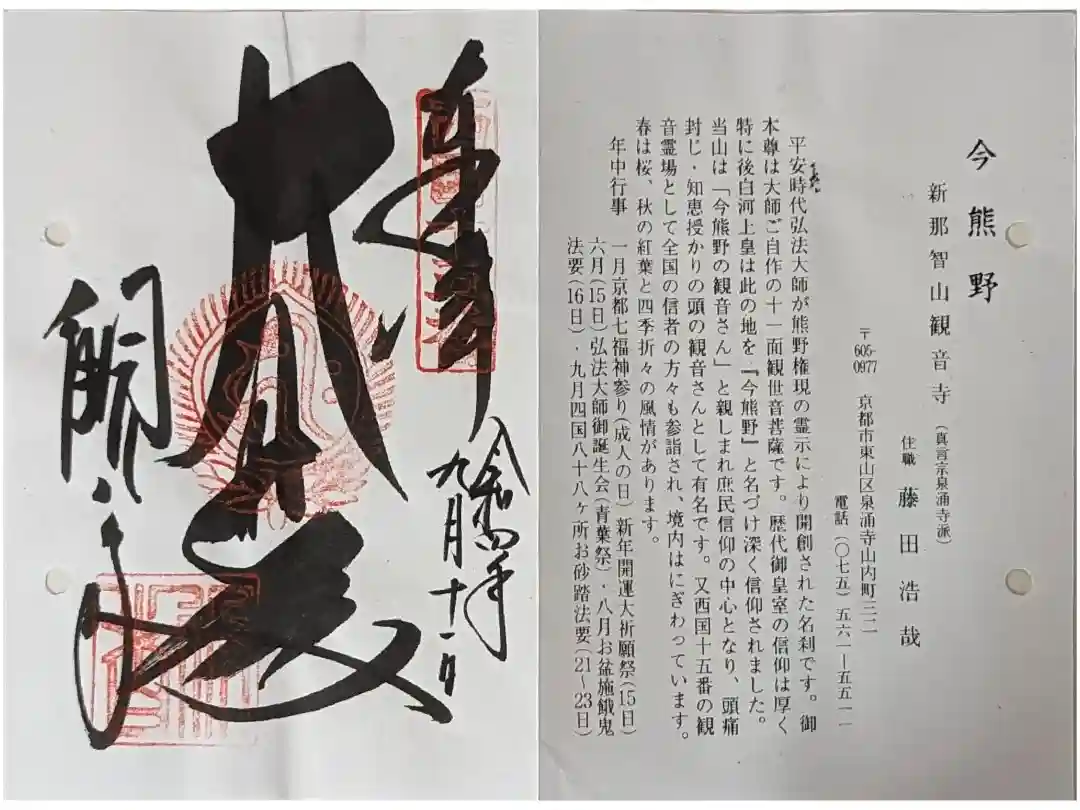 今熊野
新那智山観音寺(真言宗泉涌寺派)
住職 藤田浩哉
〒605-0977 京都市東山区泉涌寺山内町三二
電話(〇七五)五六一―五五一一
平安時代弘法大師が熊野権現の霊示により開創された名刹です。御
本尊は大師ご自作の十一面観世音菩薩です。歴代御皇室の信仰は厚く
特に後白河上皇は此の地を『今熊野』と名づけ深く信仰されました。
当山は「今熊野の観音さん」と親しまれ庶民信仰の中心となり、頭痛
封じ・知恵授かりの頭の観音さんとして有名です。又西国十五番の観
音霊場として全国の信者の方々も参詣され、境内はにぎわっています。
春は桜、秋の紅葉と四季折々の風情があります。
年中行事 一月京都七福神参り(成人の日) 新年開運大祈願祭(15日)
六月(15日)弘法大師御誕生会(青葉祭)・八月お盆施餓鬼
法要(16日)・九月四国八十八ヶ所お砂踏法要(21～23日)
奉拝
令和四年
九月十一日